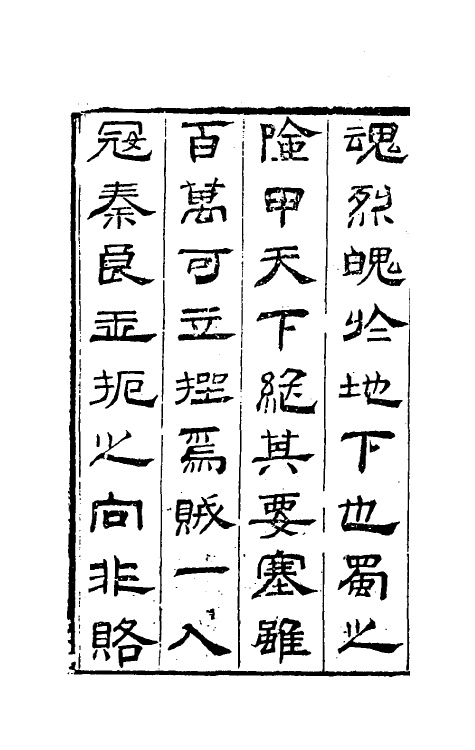 魂烈魄於地下也蜀之
險甲天下絕其要塞雖
百萬可立摧焉賊一入
寇秦良玉扼之向非賂